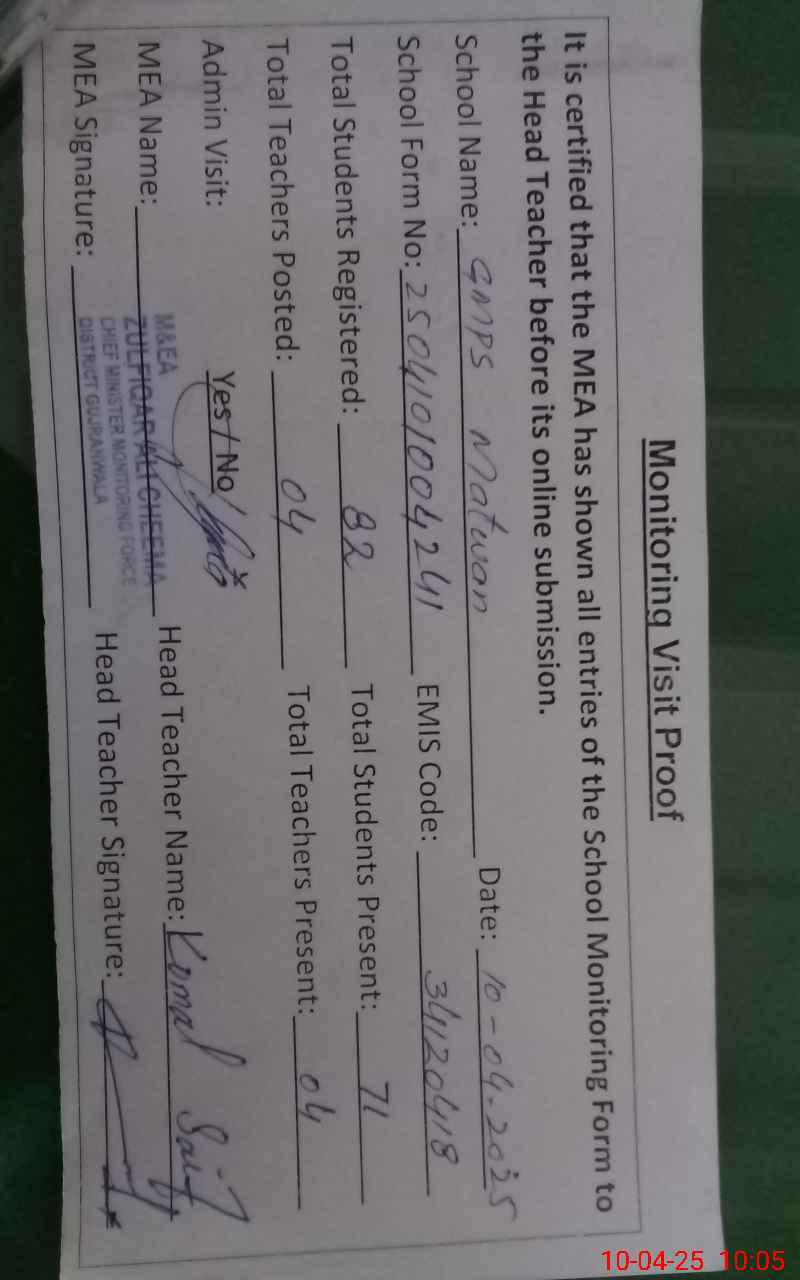 Monitoring Visit Proof
It is certified that the MEA has shown all entries of the School Monitoring Form to
the Head Teacher before its online submission.
School Name: GMPS Matwan Date: 10-04-2025
School Form No: 2504101004241 EMIS Code: 34120418
Total Students Registered: 82 Total Students Present: 71
Total Teachers Posted: 04 Total Teachers Present: 04
Admin Visit: Yes / No
MEA Name: Head Teacher Name: Komal Saif
MEA Signature: Head Teacher Signature:
M&EA
ZULFIQAR ALI CHEEMA
CHIEF MINISTER MONITORING FORCE
DISTRICT GUJRANWALA
10-04-25 10:05